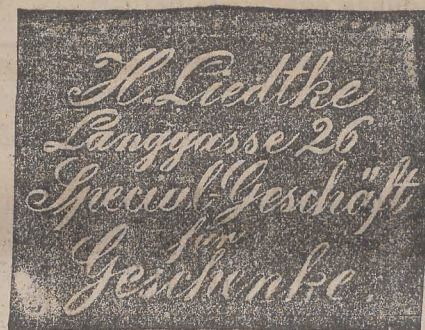 H. Liedtke
Langgasse 26
Special-Geschäft
für
Geschenke.